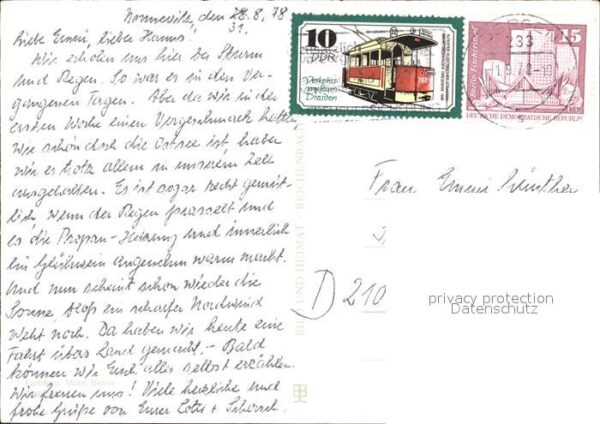 Nonnevitz, den 28.8.78
31.
Liebe Emmi, lieber Hanns!
Wir erholen uns hier bei Sturm
und Regen. So war es in den ver-
gangenen Tagen. Aber da wir in der
ersten Woche einen Vorgeschmack hatten
wie schön doch die Ostsee ist, haben
wir es trotz allem in unserem Zelt
ausgehalten. Es ist sogar recht gemüt-
lich, wenn der Regen prasselt und
es die Propan-Heizung und innerlich
ein Glühwein angenehm warm macht.
Und nun scheint schon wieder die
Sonne bloß ein scharfer Nordwind
weht noch. Da haben wir heute eine
Fahrt übers Land gemacht. - Bald
können wir Euch alles selbst erzählen.
Wir freuen uns! Viele herzliche und
frohe Grüße von Eurer Lotte +
10
DDR
Verkehrs
museum
Dresden
761
15
233
DEUTSCHE DEMOKRATISCHE REPUBLIK
Frau Emmi Günther
BILD UND HEIMAT REICHENBACH
D 210
privacy protection
Datenschutz